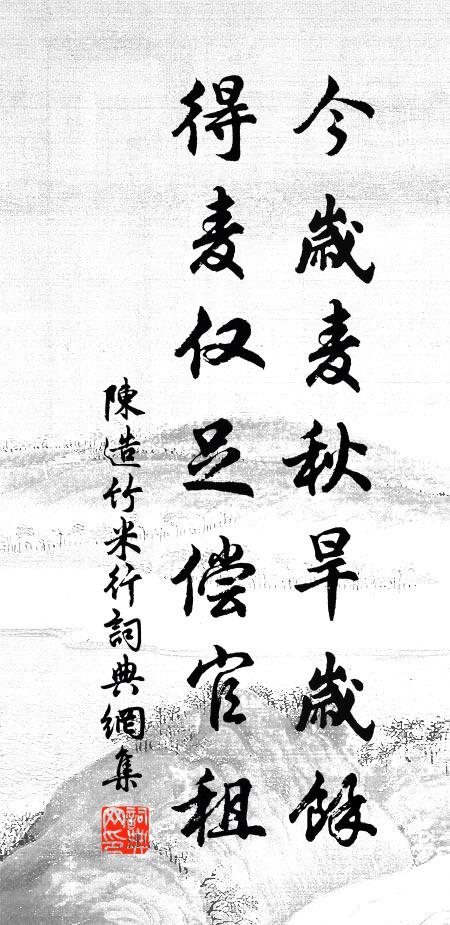 今歲麦秋旱歲餘
得麦仅足偿官租
陳造竹米行詞典網集